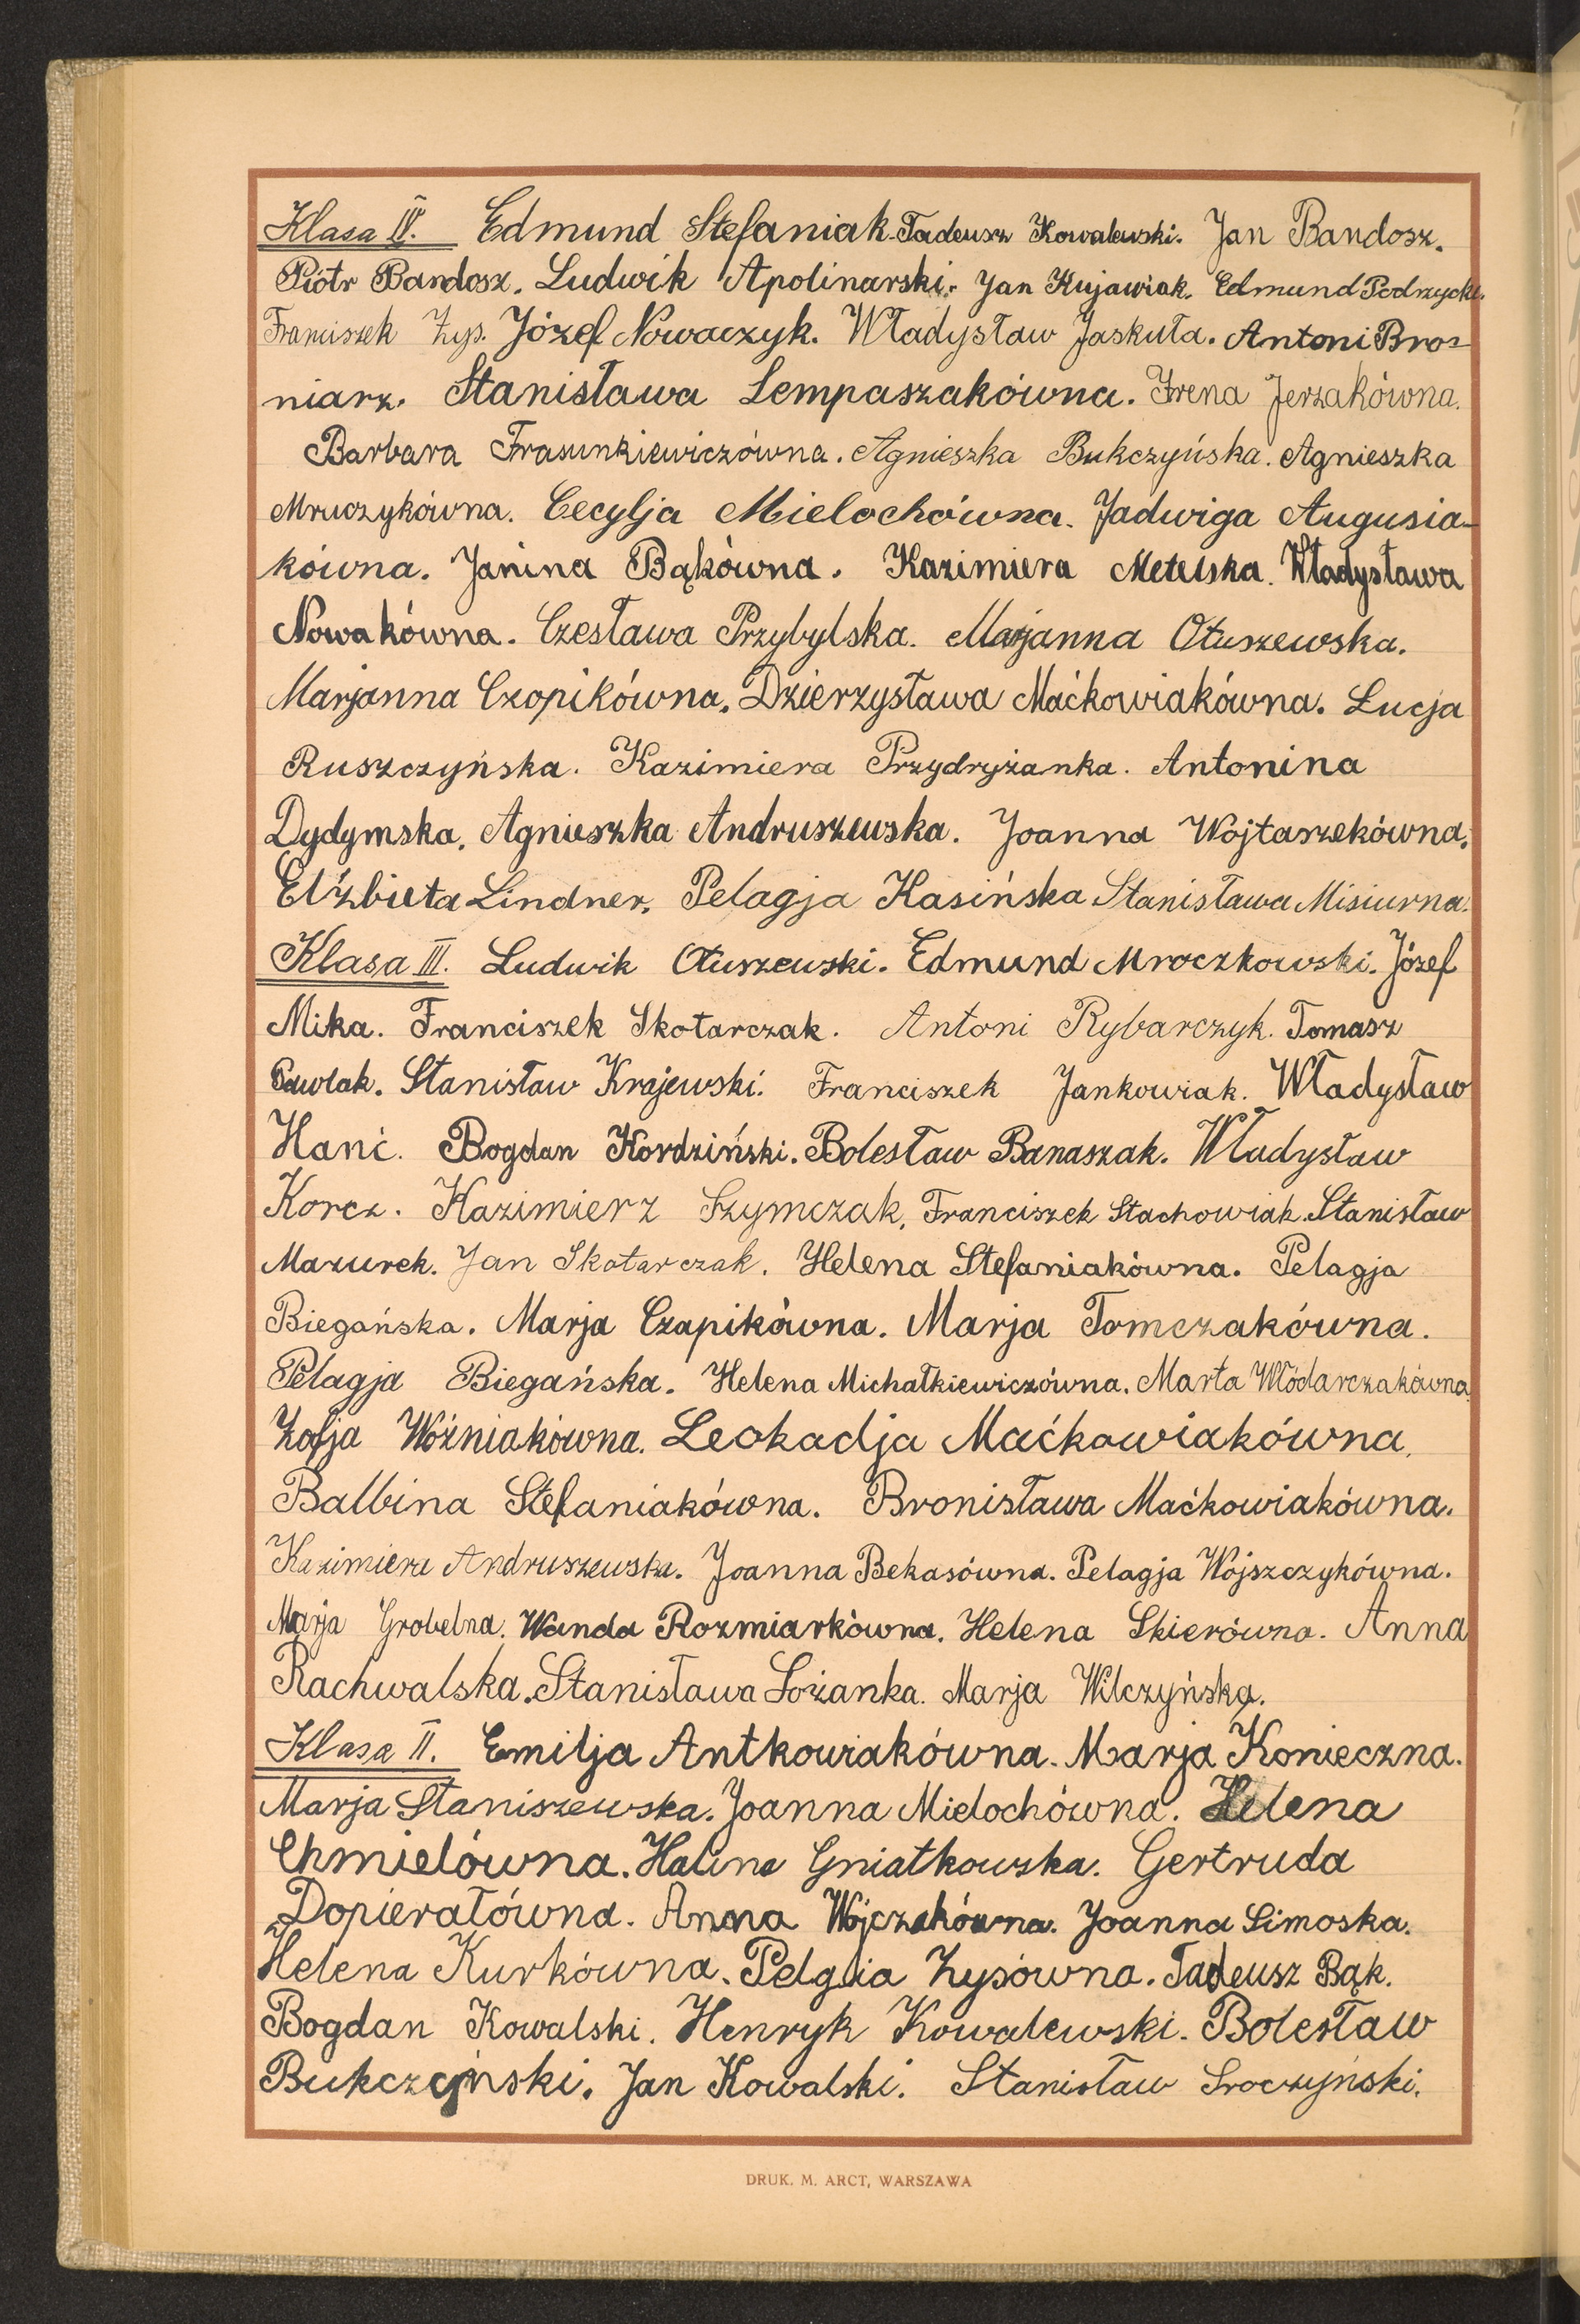 Klasa IV. Edmund Stefaniak. Tadeusz Kowalewski. Jan Bandosz.
Piótr Bandosz. Ludwik Apolinarski. Jan Kujawiak. Edmund Podrzycki.
Franciszek Zys. Józef Nowaczyk. Władysław Jaskuła. Antoni Bro-
niarz. Stanisława Lempaszakówna. Irena Jerzakówna.
Barbara Frasunkiewiczówna. Agnieszka Bukczyńska. Agnieszka
Mruczykówna. Cecylja Mielochówna. Jadwiga Augusia-
kówna. Janina Bąkówna. Kazimiera Metelska. Władysława
Nowakówna. Czesława Przybylska. Marjanna Otuszewska.
Marjanna Czopikówna. Dzierzysława Maćkowiakówna. Łucja
Ruszczyńska. Kazimiera Przydryżanka. Antonina
Dydymska. Agnieszka Andruszewska. Joanna Wojtaszekówna.
Elżbieta Lindner. Pelagja Kasińska Stanisława Misiurna.
Klasa III. Ludwik Otuszewski. Edmund Mroczkowski. Józef
Mika. Franciszek Skotarczak. Antoni Rybarczyk. Tomasz
Pawlak. Stanisław Krajewski. Franciszek Jankowiak. Władysław
Hanć. Bogdan Kordziński. Bolesław Banaszak. Władysław
Korcz. Kazimierz Szymczak. Franciszek Stachowiak. Stanisław
Mazurek. Jan Skotarczak. Helena Stefaniakówna. Pelagja
Biegańska. Marja Czapikówna. Marja Tomczakówna.
Pelagja Biegańska. Helena Michałkiewiczówna. Marta Włódarczakówna
Zofja Woźniakówna. Leokadja Maćkowiakówna.
Balbina Stefaniakówna. Bronisława Maćkowiakówna.
Kazimiera Andruszewska. Joanna Bekasówna. Pelagja Wojszczykówna.
Marja Grobelna. Wanda Rozmiarkówna. Helena Skierówna. Anna
Rachwalska. Stanisława Łożanka. Marja Wilczyńska.
Klasa II. Emilja Antkowiakówna. Marja Konieczna.
Marja Staniszewska. Joanna Mielochówna. Helena
Chmielówna. Halina Gniatkowska. Gertruda
Dopierałówna. Anna Wojczakówna. Joanna Simoska.
Helena Kurkówna. Pelglia Zysówna. Tadeusz Bąk.
Bogdan Kowalski. Henryk Kowalewski. Bolesław
Bukczyński. Jan Kowalski. Stanisław Sroczyński.
DRUK. M. ARCT, WARSZAWA